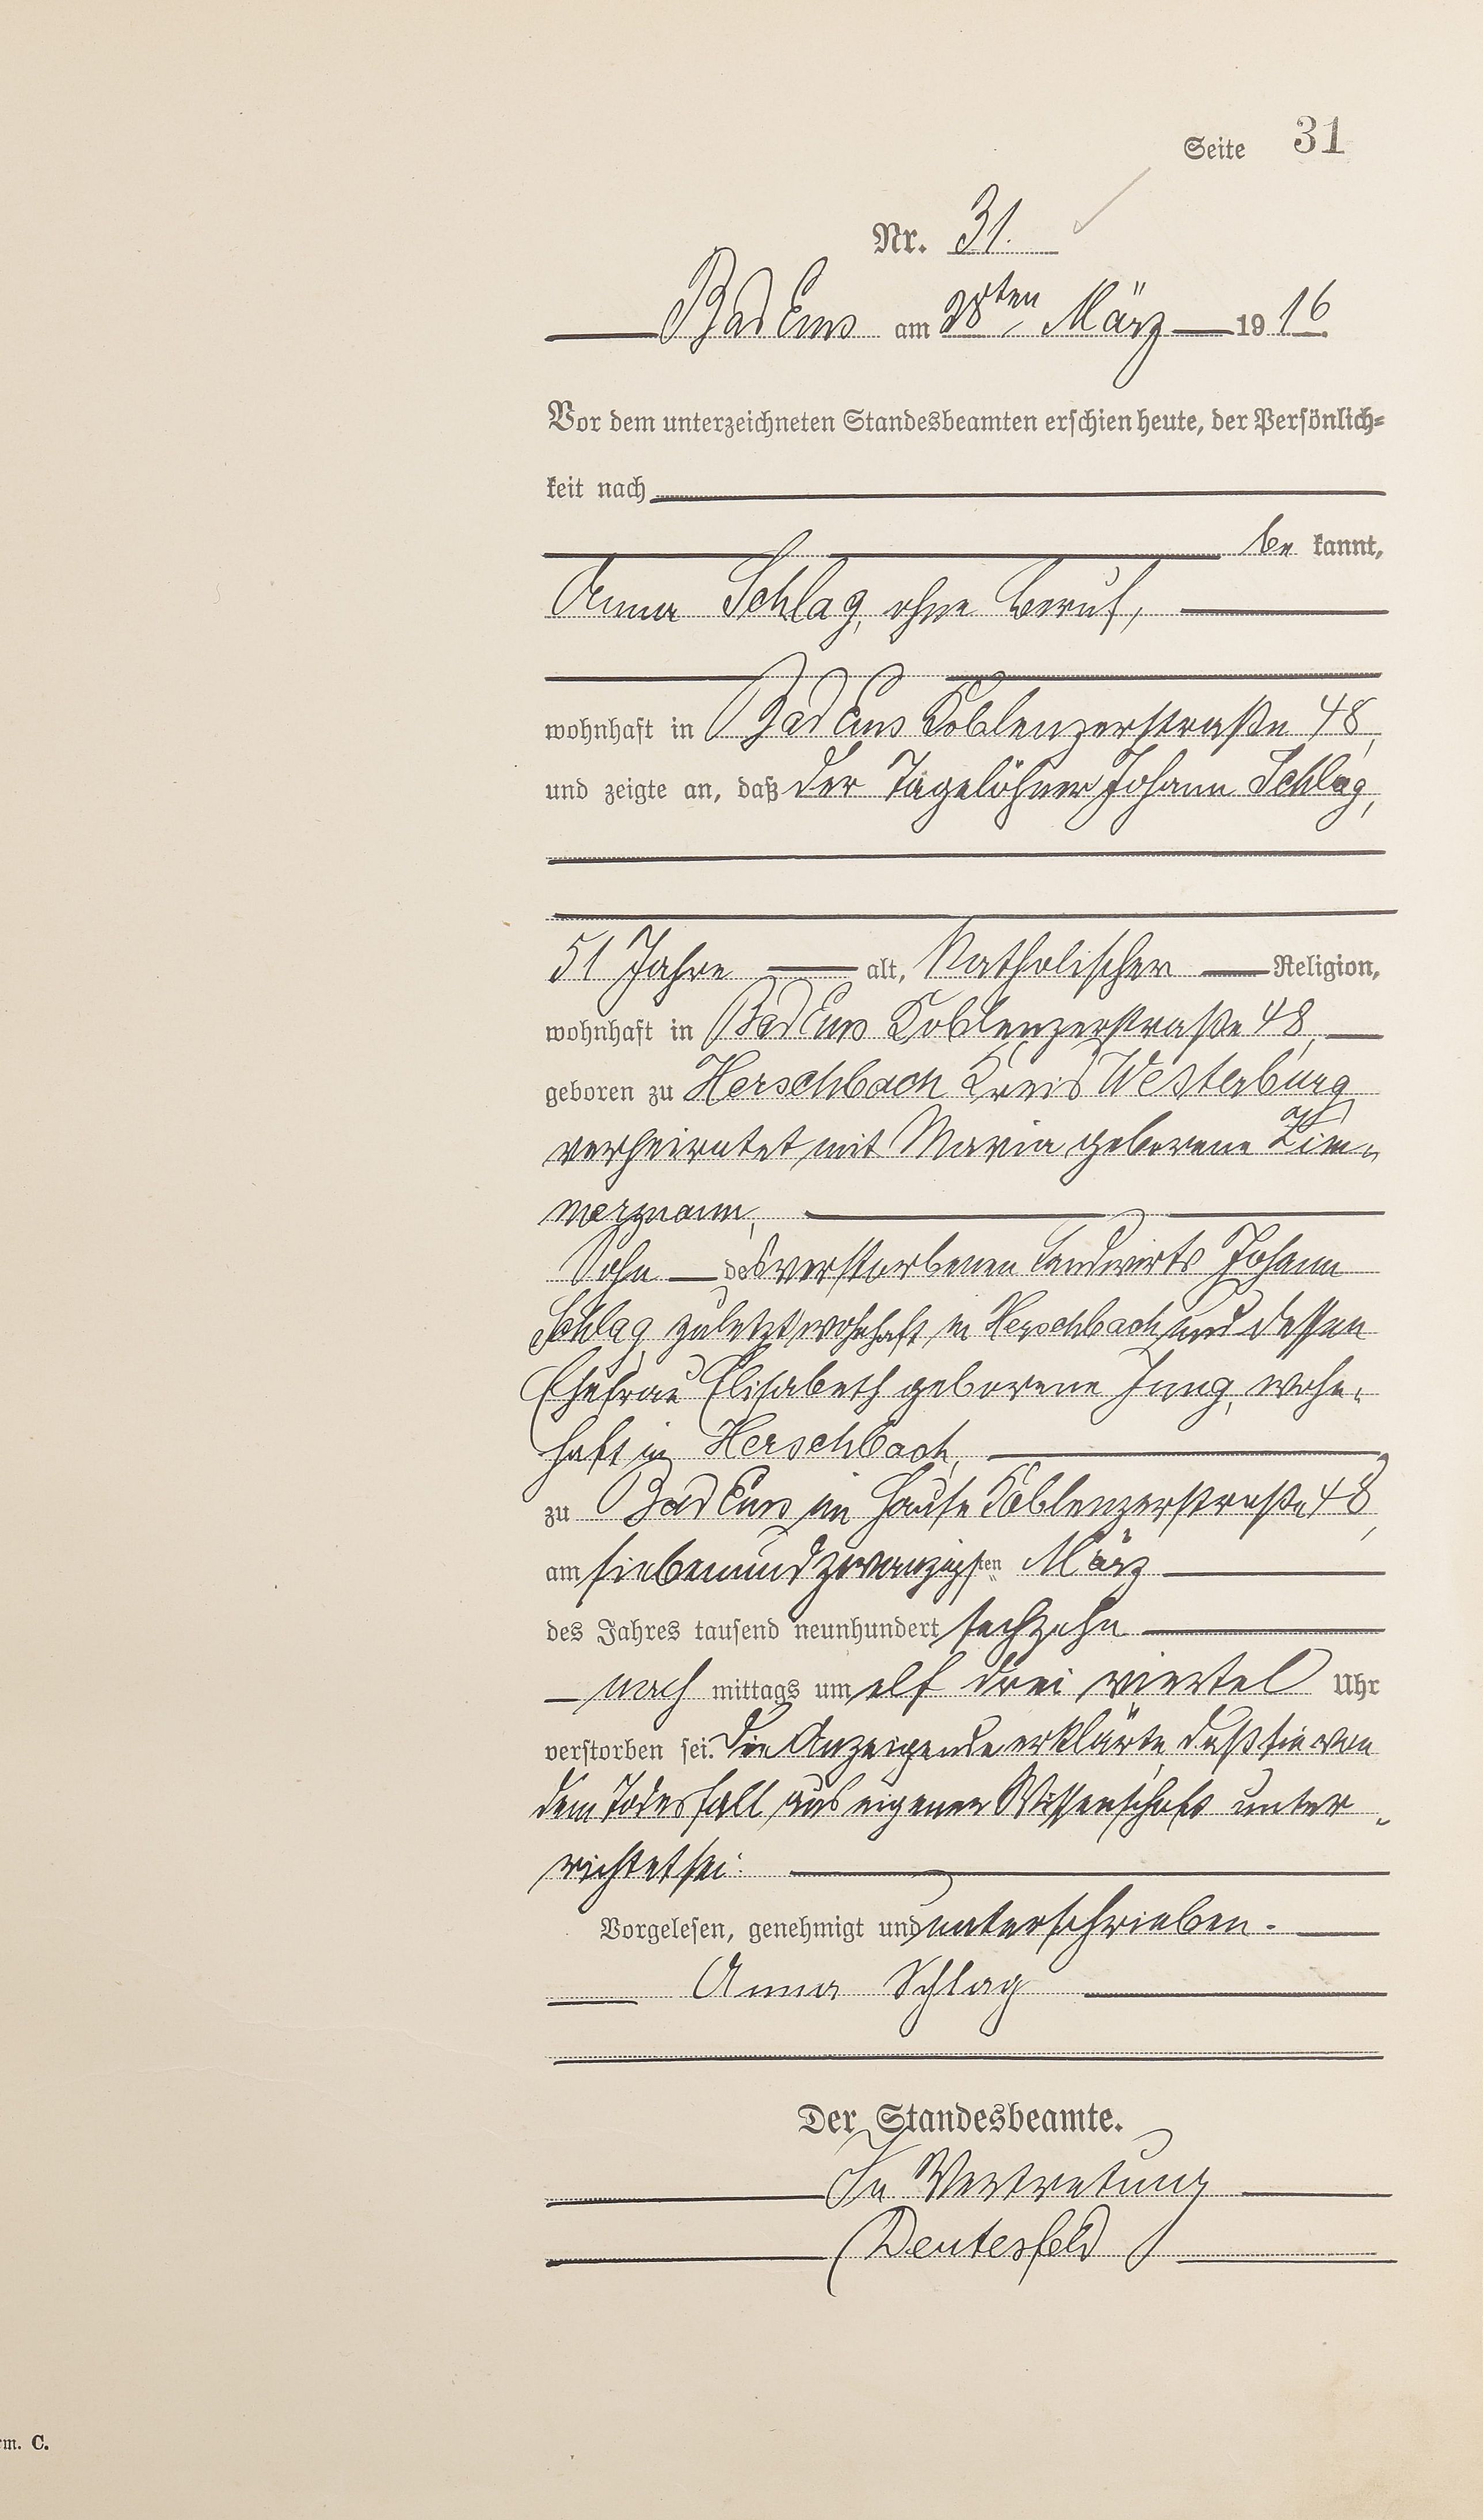 Seite 31
Nr. 31.
Bad Ems am 28ten März 1916.
Vor dem unterzeichneten Standesbeamten erschien heute, der Persönlich=
keit nach
be kannt,
Anna Schlag, ohne Beruf,
wohnhaft in Bad Ems Koblenzerstraße 48,
und zeigte an, daß der Tagelöhner Johann Schlag,
51 Jahre alt, Katholischer Religion,
wohnhaft in Bad Ems Koblenzerstraße 48,
geboren zu Herschbach Kreis Westerburg
verheiratet mit Maria geborene Zim-
mermann,
Sohn des verstorbenen Landwirts Johann
Schlag zuletzt wohnhaft in Herschbach und dessen
Ehefrau Elisabeth geborene Jung, wohn-
haft in Herschbach,
zu Bad Ems im Hause Koblenzerstraße 48,
am siebenundzwanzigsten März
des Jahres tausend neunhundert sechzehn
nach mittags um elf drei viertel Uhr
verstorben sei. Die Anzeigende erklärte, daß sie von
dem Todesfall aus eigener Wissenschaft unter-
richtet sei.
Vorgelesen, genehmigt und unterschrieben.
Anna Schlag
Der Standesbeamte.
In Vertretung
Deutesfeld
rm. C.